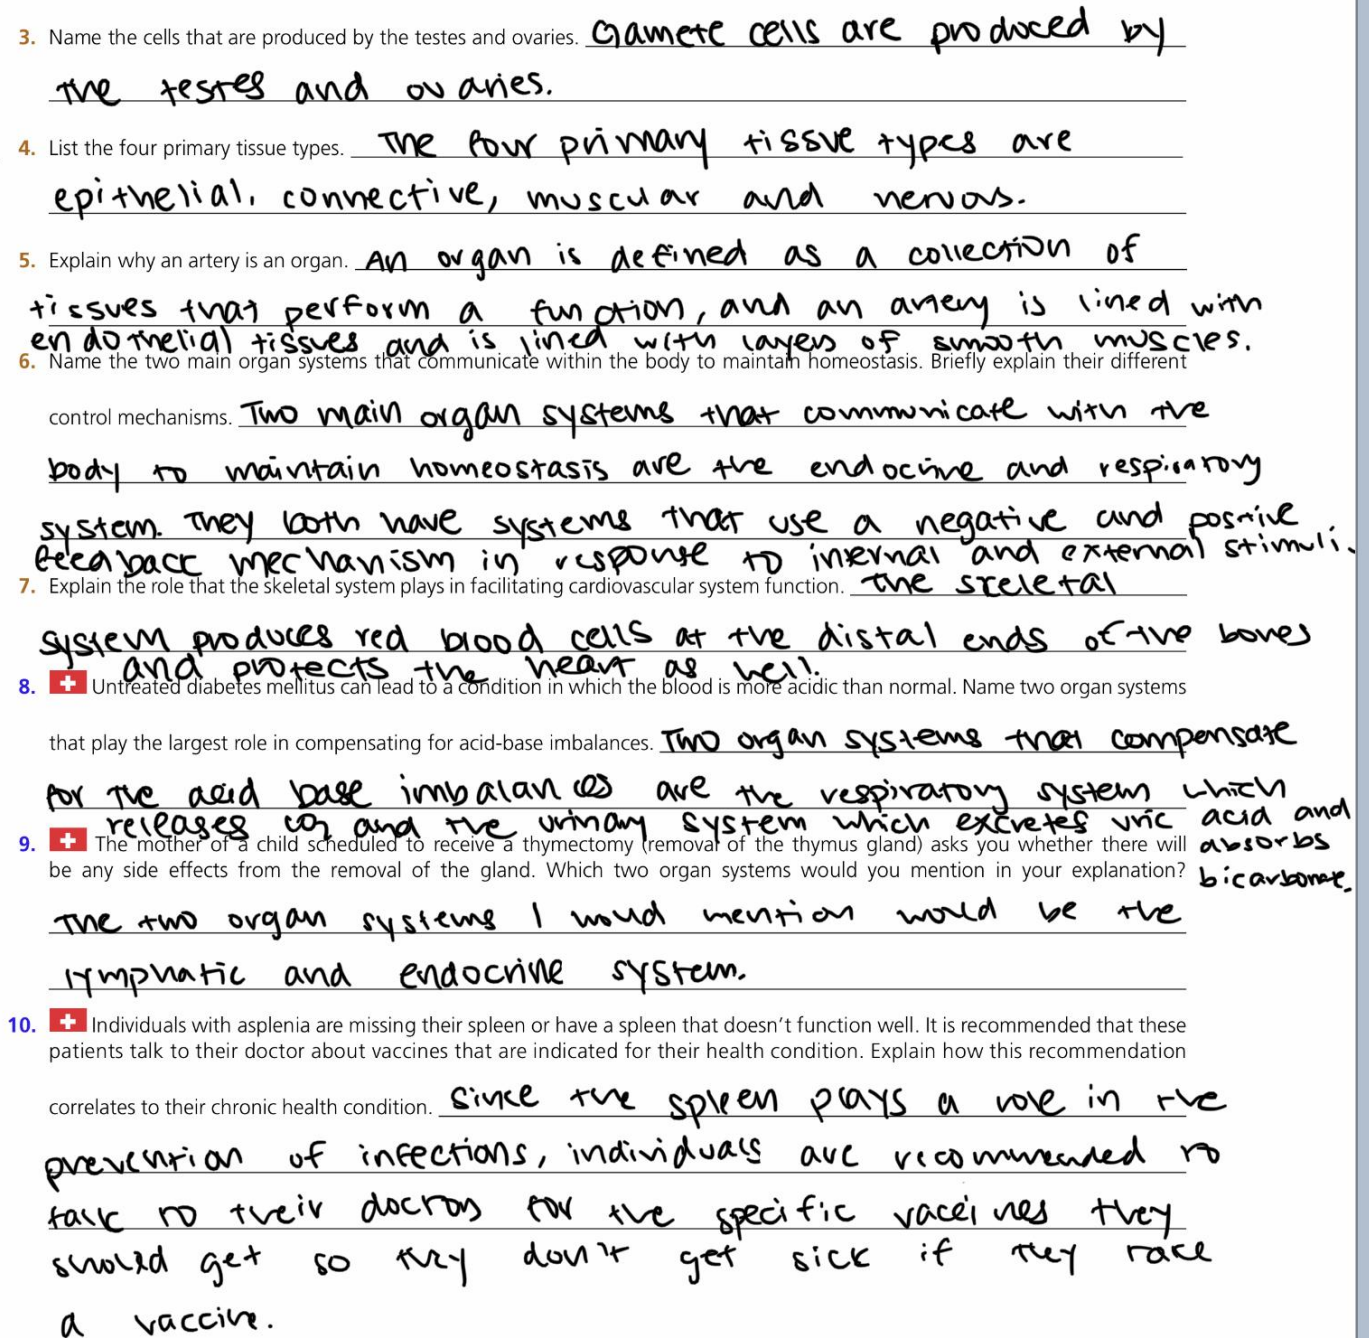 3. Name the cells that are produced by the testes and ovaries. Gamete cells are produced by
the testes and ovaries.
4. List the four primary tissue types. The four primary tissue types are
epithelial, connective, muscular and nervous.
5. Explain why an artery is an organ. An organ is defined as a collection of
tissues that perform a function, and an artery is lined with
endothelial tissues and is lined with layers of smooth muscles.
6. Name the two main organ systems that communicate within the body to maintain homeostasis. Briefly explain their different
control mechanisms. Two main organ systems that communicate with the
body to maintain homeostasis are the endocrine and respiratory
system. They both have systems that use a negative and positive
feedback mechanism in response to internal and external stimuli.
7. Explain the role that the skeletal system plays in facilitating cardiovascular system function. The skeletal
system produces red blood cells at the distal ends of the bones
and protects the heart as well.
8. Untreated diabetes mellitus can lead to a condition in which the blood is more acidic than normal. Name two organ systems
that play the largest role in compensating for acid-base imbalances. Two organ systems that compensate
for the acid base imbalances are the respiratory system which
releases co2 and the urinary system which excretes uric acid and
9. The mother of a child scheduled to receive a thymectomy (removal of the thymus gland) asks you whether there will absorbs
be any side effects from the removal of the gland. Which two organ systems would you mention in your explanation? bicarbonate.
The two organ systems I would mention would be the
lymphatic and endocrine system.
10. Individuals with asplenia are missing their spleen or have a spleen that doesn't function well. It is recommended that these
patients talk to their doctor about vaccines that are indicated for their health condition. Explain how this recommendation
correlates to their chronic health condition. Since the spleen plays a role in the
prevention of infections, individuals are recommended to
talk to their doctors for the specific vaceines they
should get so they don't get sick if they
a vaccine.